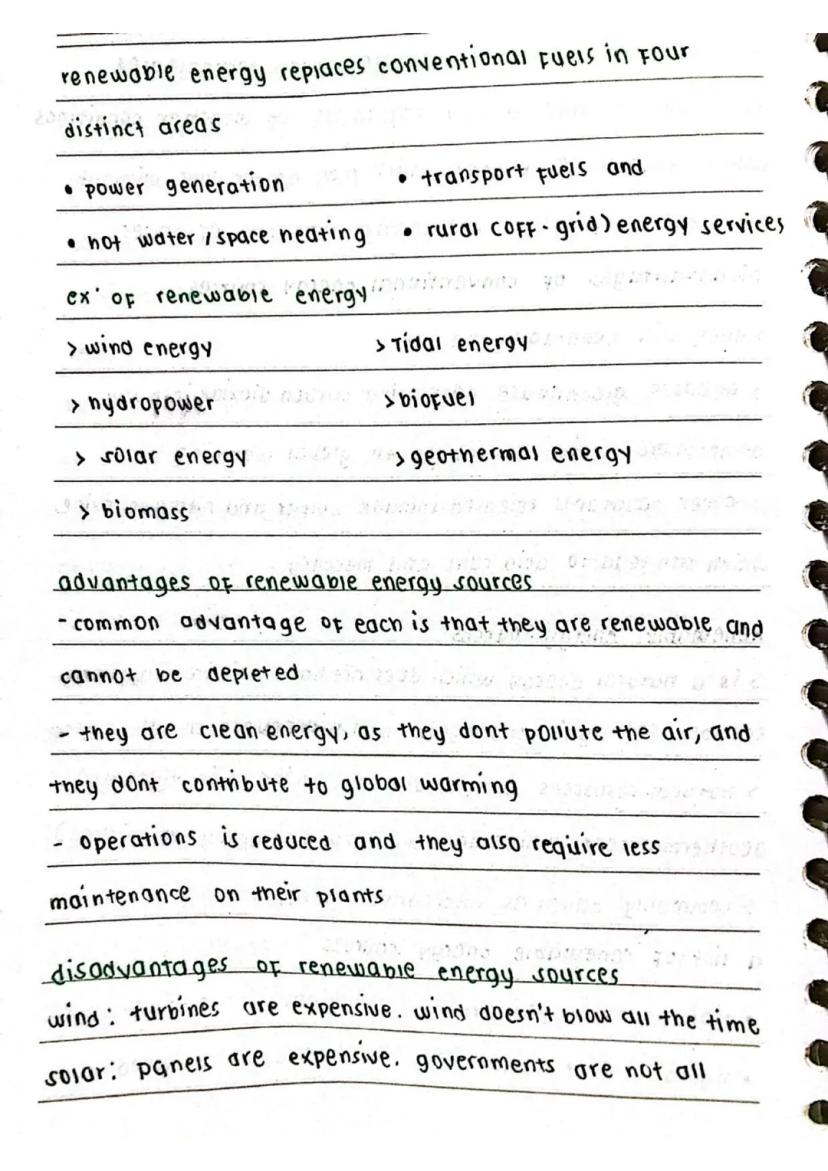 renewable energy replaces conventional fuels in four
distinct areas
• power generation • transport fuels and
• hot water / space heating • rural (off-grid) energy services
ex' of renewable energy
> wind energy > Tidal energy
> hydropower > biofuel
> solar energy > geothermal energy
> biomass
advantages of renewable energy sources
- common advantage of each is that they are renewable and
cannot be depleted
- they are clean energy, as they dont pollute the air, and
they dont contribute to global warming
- operations is reduced and they also require less
maintenance on their plants
disadvantages of renewable energy sources
wind: turbines are expensive. wind doesn't blow all the time
solar: panels are expensive. governments are not all